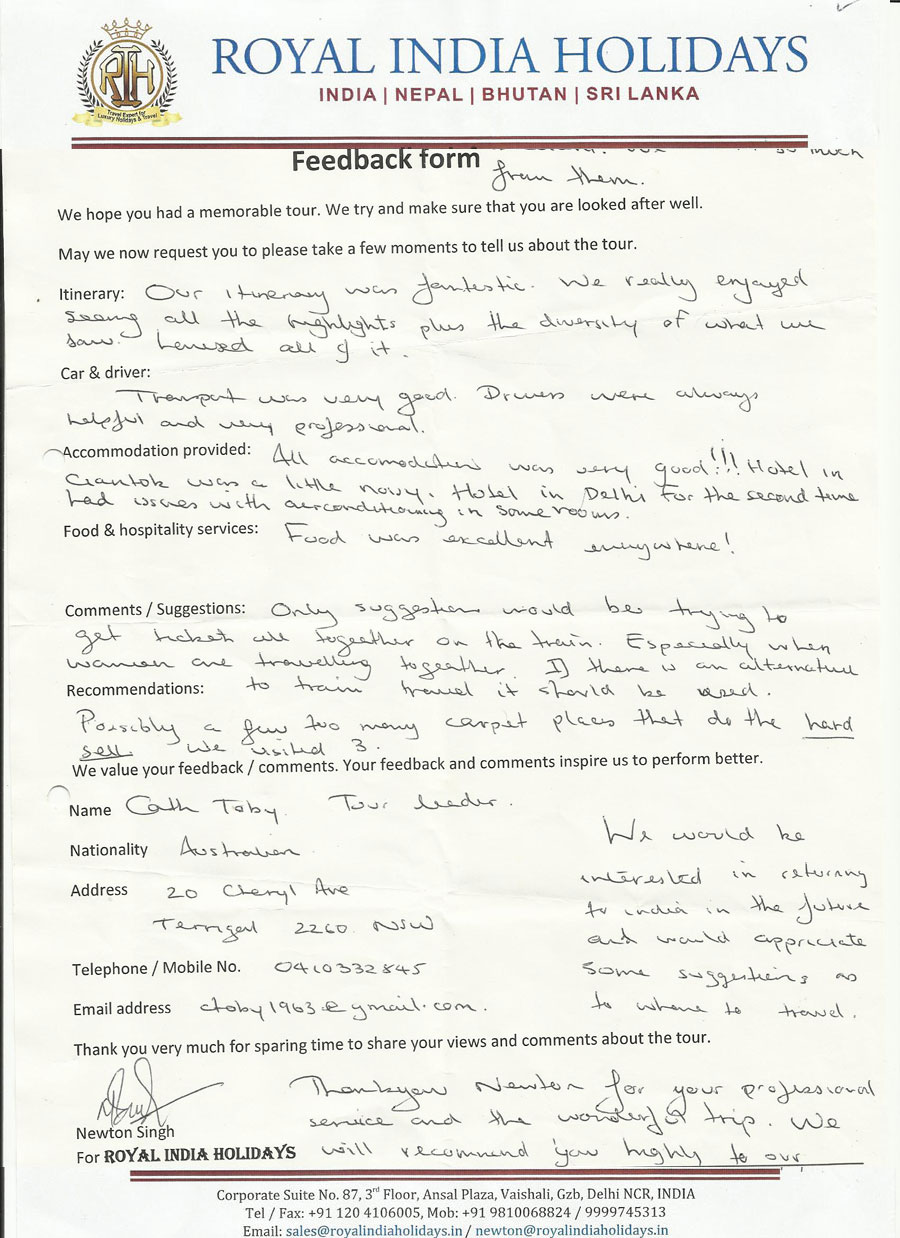 ROYAL INDIA HOLIDAYS
INDIA | NEPAL | BHUTAN | SRI LANKA
RIH
Travel Expert for
Luxury Holidays & Travel
Feedback form
so much
from them.
We hope you had a memorable tour. We try and make sure that you are looked after well.
May we now request you to please take a few moments to tell us about the tour.
Itinerary: Our itinerary was fantastic. We really enjoyed
seeing all the highlights plus the diversity of what we
saw. all of it.
Car & driver:
Transport was very good. Drivers were always
helpful and very professional.
Accommodation provided: All accomodation was very good!!! Hotel in
Gantok was a little noisy. Hotel in Delhi for the second time
had issues with airconditioning in some rooms.
Food & hospitality services: Food was excellent everywhere!
Comments / Suggestions: Only suggestion would be trying to
get ticket all together on the train. Especially when
women are travelling together. If there is an alternative
Recommendations: to train travel it should be used.
Possibly a few too many carpet places that do the hard
sell. We visited 3.
We value your feedback / comments. Your feedback and comments inspire us to perform better.
Name Cath Toby. Tour leader.
Nationality Australian
Address 20 Cheryl Ave
Terrigal 2260 NSW
Telephone / Mobile No. 0410332845
Email address ctoby1963@gmail.com.
We would be
interested in returning
to india in the future
and would appriciate
some suggestions as
to where to travel.
Thank you very much for sparing time to share your views and comments about the tour.
Thankyou Newton for your professional
service and the wonderful trip. We
will recommend you highly to our
Newton Singh
For ROYAL INDIA HOLIDAYS
Corporate Suite No. 87, 3rd Floor, Ansal Plaza, Vaishali, Gzb, Delhi NCR, INDIA
Tel / Fax: +91 120 4106005, Mob: +91 9810068824 / 9999745313
Email: sales@royalindiaholidays.in / newton@royalindiaholidays.in